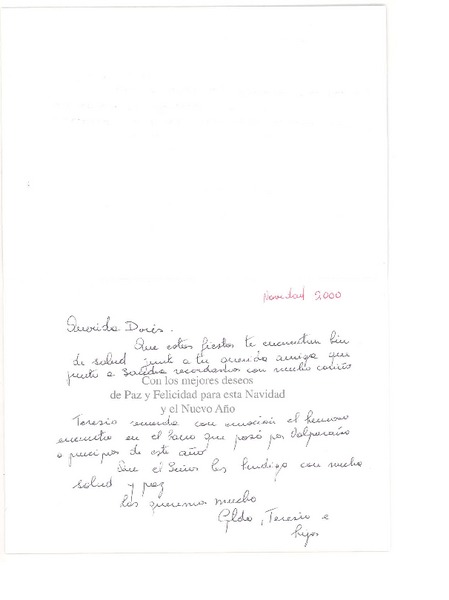 Navidad 2000
Querida Doris.
Que estas fiestas te encuentren bien
de salud junto a tu querida amiga que
junto a recordamos con mucho cariño
Con los mejores deseos
de Paz y Felicidad para esta Navidad
y el Nuevo Año
Teresa recuerda con emoción el hermoso
encuentro en el barco que pasó por Valparaíso
a principios de este año
Que el Señor les bendiga con mucha
salud y paz
Los queremos mucho
Teresa e
hijos